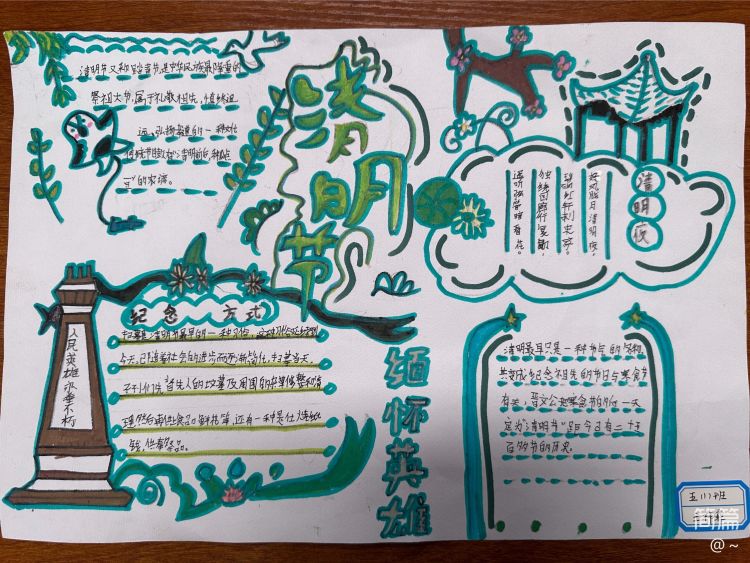 清明节又称踏青节,是中华民族最隆重的
祭祖大节,属于礼敬祖先,慎终追
远、弘扬孝道的一种
的家添。
清
明
节
清明夜
好风胧月清明夜,
碧砌红轩刺史家。
独绕回廊行复歇,
遥听弦管暗看花。
纪念 方式
扫墓是清明节最早的一种习俗,这种习俗延续到
今天,已随着社会的进步而逐渐简化,扫墓当天,
子孙们先将先人的坟墓及周围的杂草修整和清
理,然后供上食品鲜花等,还有一种是
钱,供奉祭品。
人民英雄永垂不朽
缅怀英雄
清明最早只是一种节气的名称,
其变成纪念祖先的节日与寒食节
有关,晋文公把寒食节的后一天
定为"清明节"距今已有二千五
百多年的历史。
五(1)班
简篇
@ ~